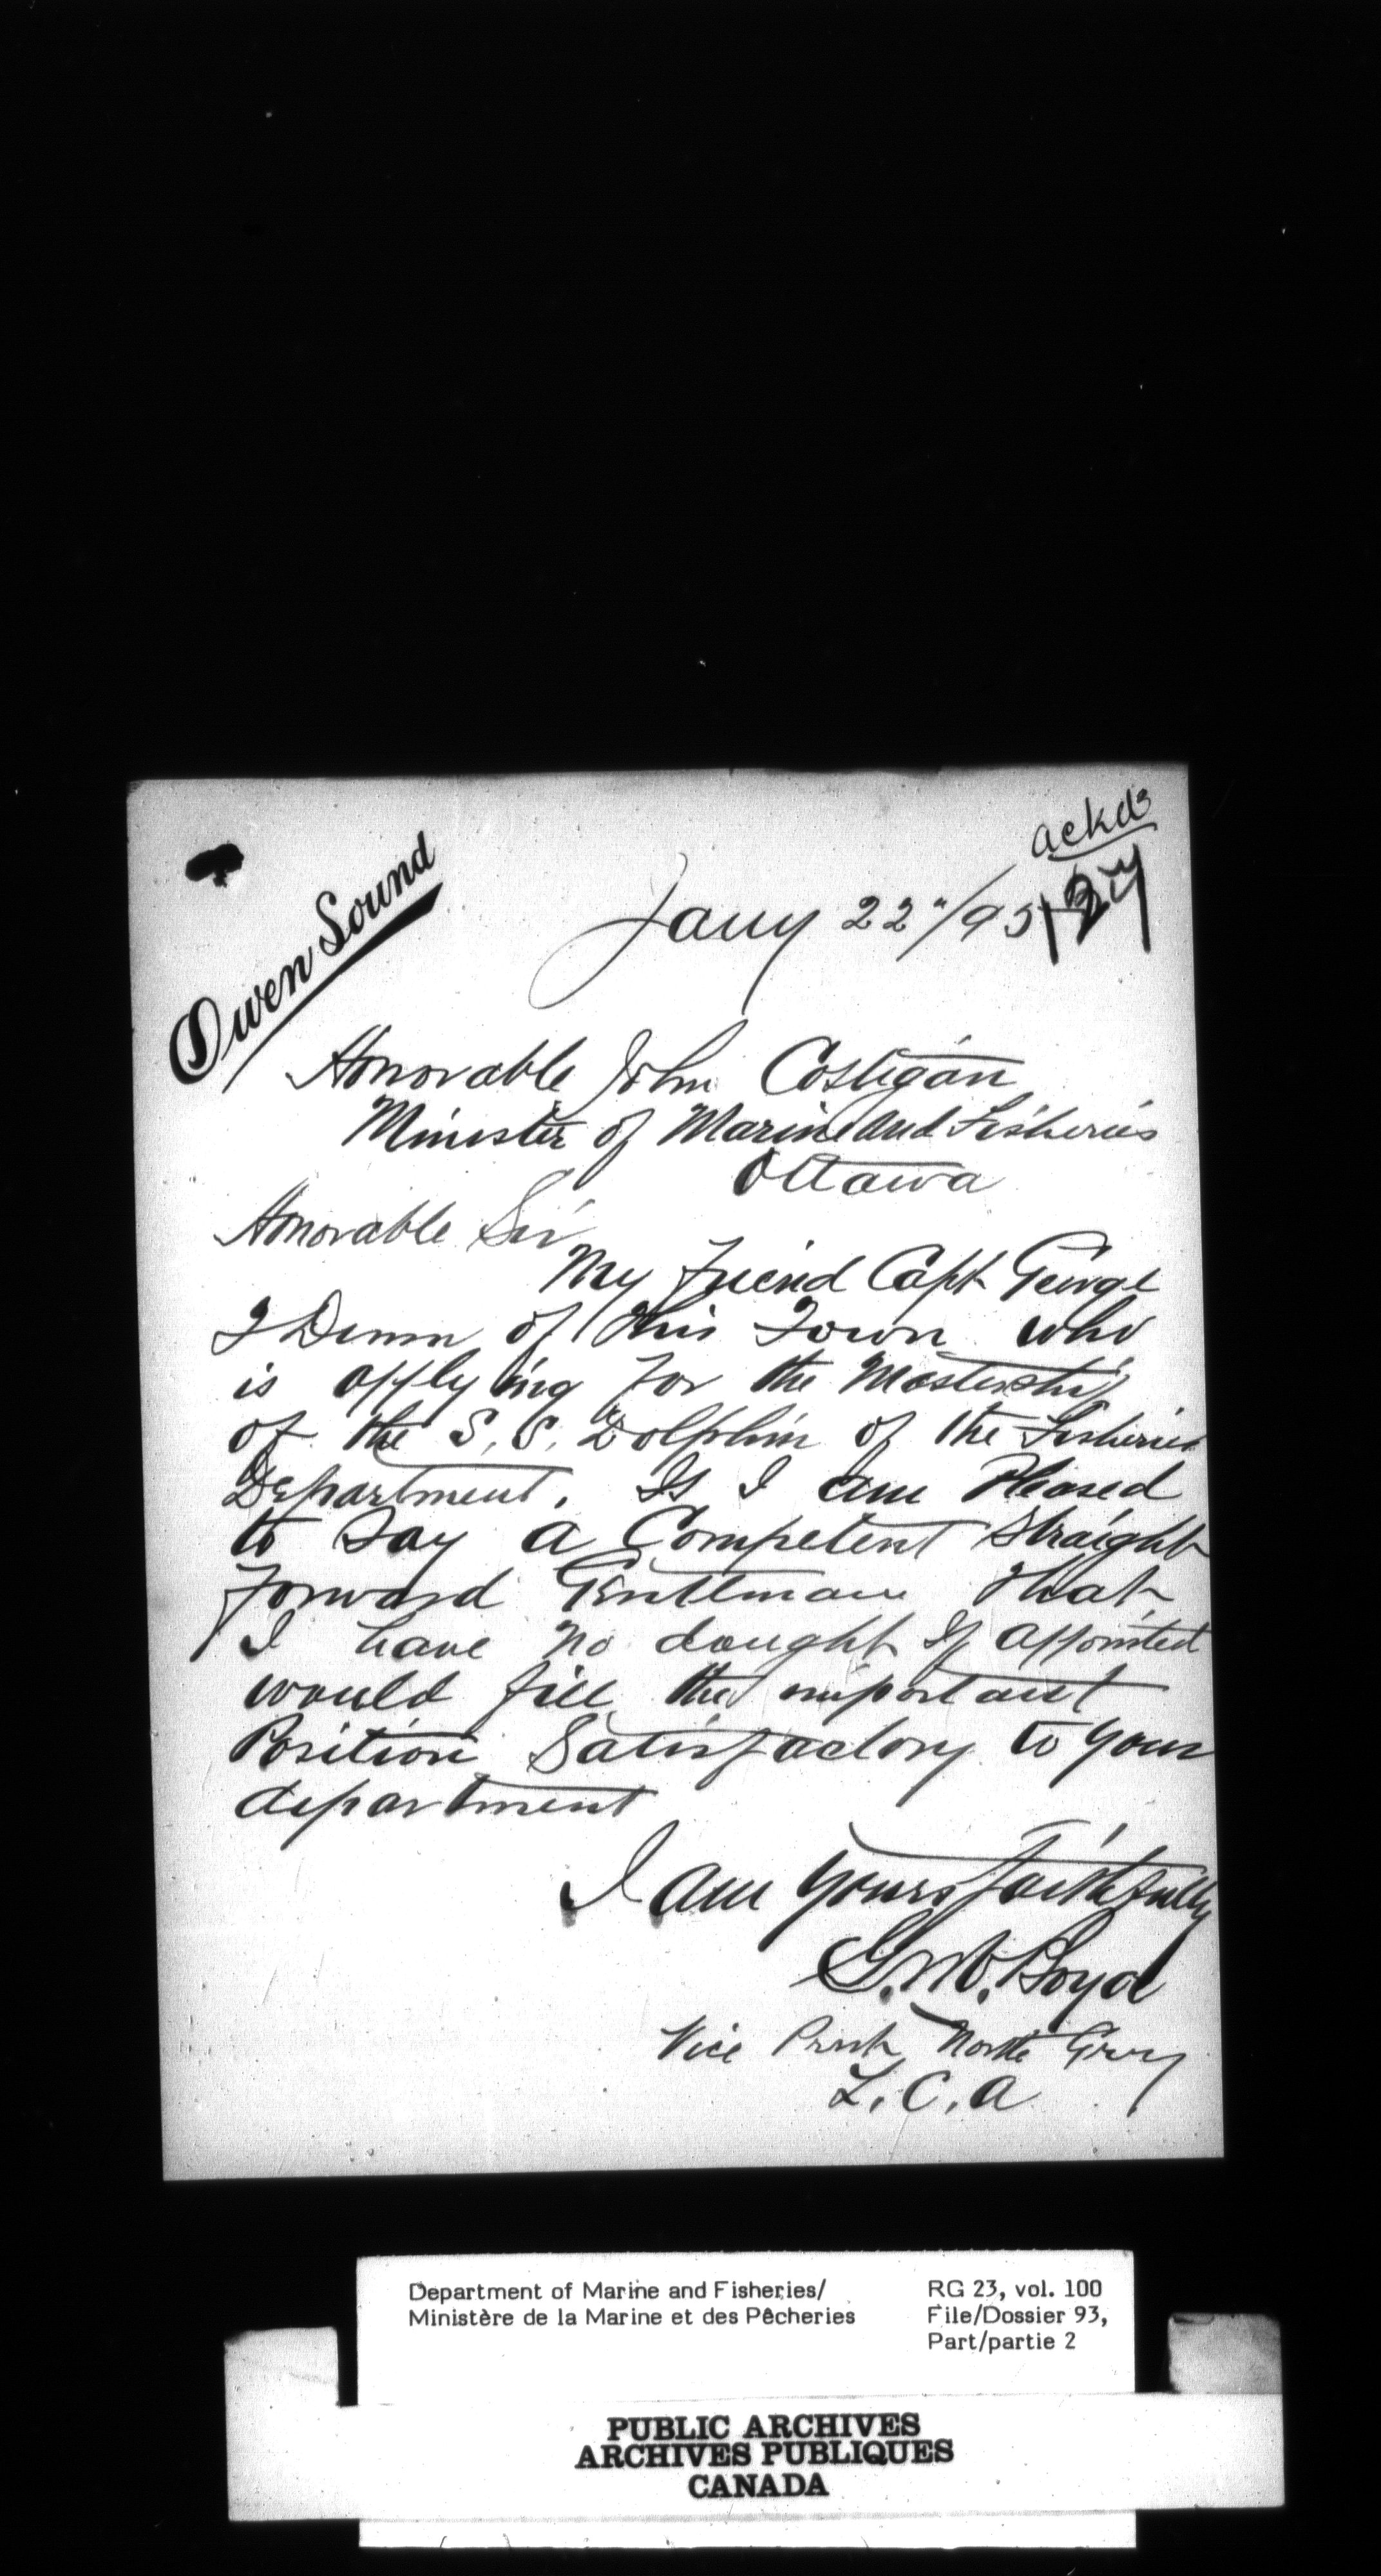 ackd
27
Owen Sound
Jany 22"/95
Honorable John Costigan
Minister of Marine and Fisheries
Ottawa
Honorable Sir
My Friend Capt George
Dunn of this Town who
is applying for the Mastership
of the S.S. Dolphin of the Fisheries
Department. Is I am Pleased
to Say a Competent Straight
forward Gentleman that
I have no dought If appointed
would fill the important
Position Satisfactory to your
department
I am yours faithfully
G. W. Boyd
Vice Prest North Grey
L. C. A
Department of Marine and Fisheries/
Ministère de la Marine et des Pêcheries
RG 23, vol. 100
File/Dossier 93,
Part/partie 2
PUBLIC ARCHIVES
ARCHIVES PUBLIQUES
CANADA